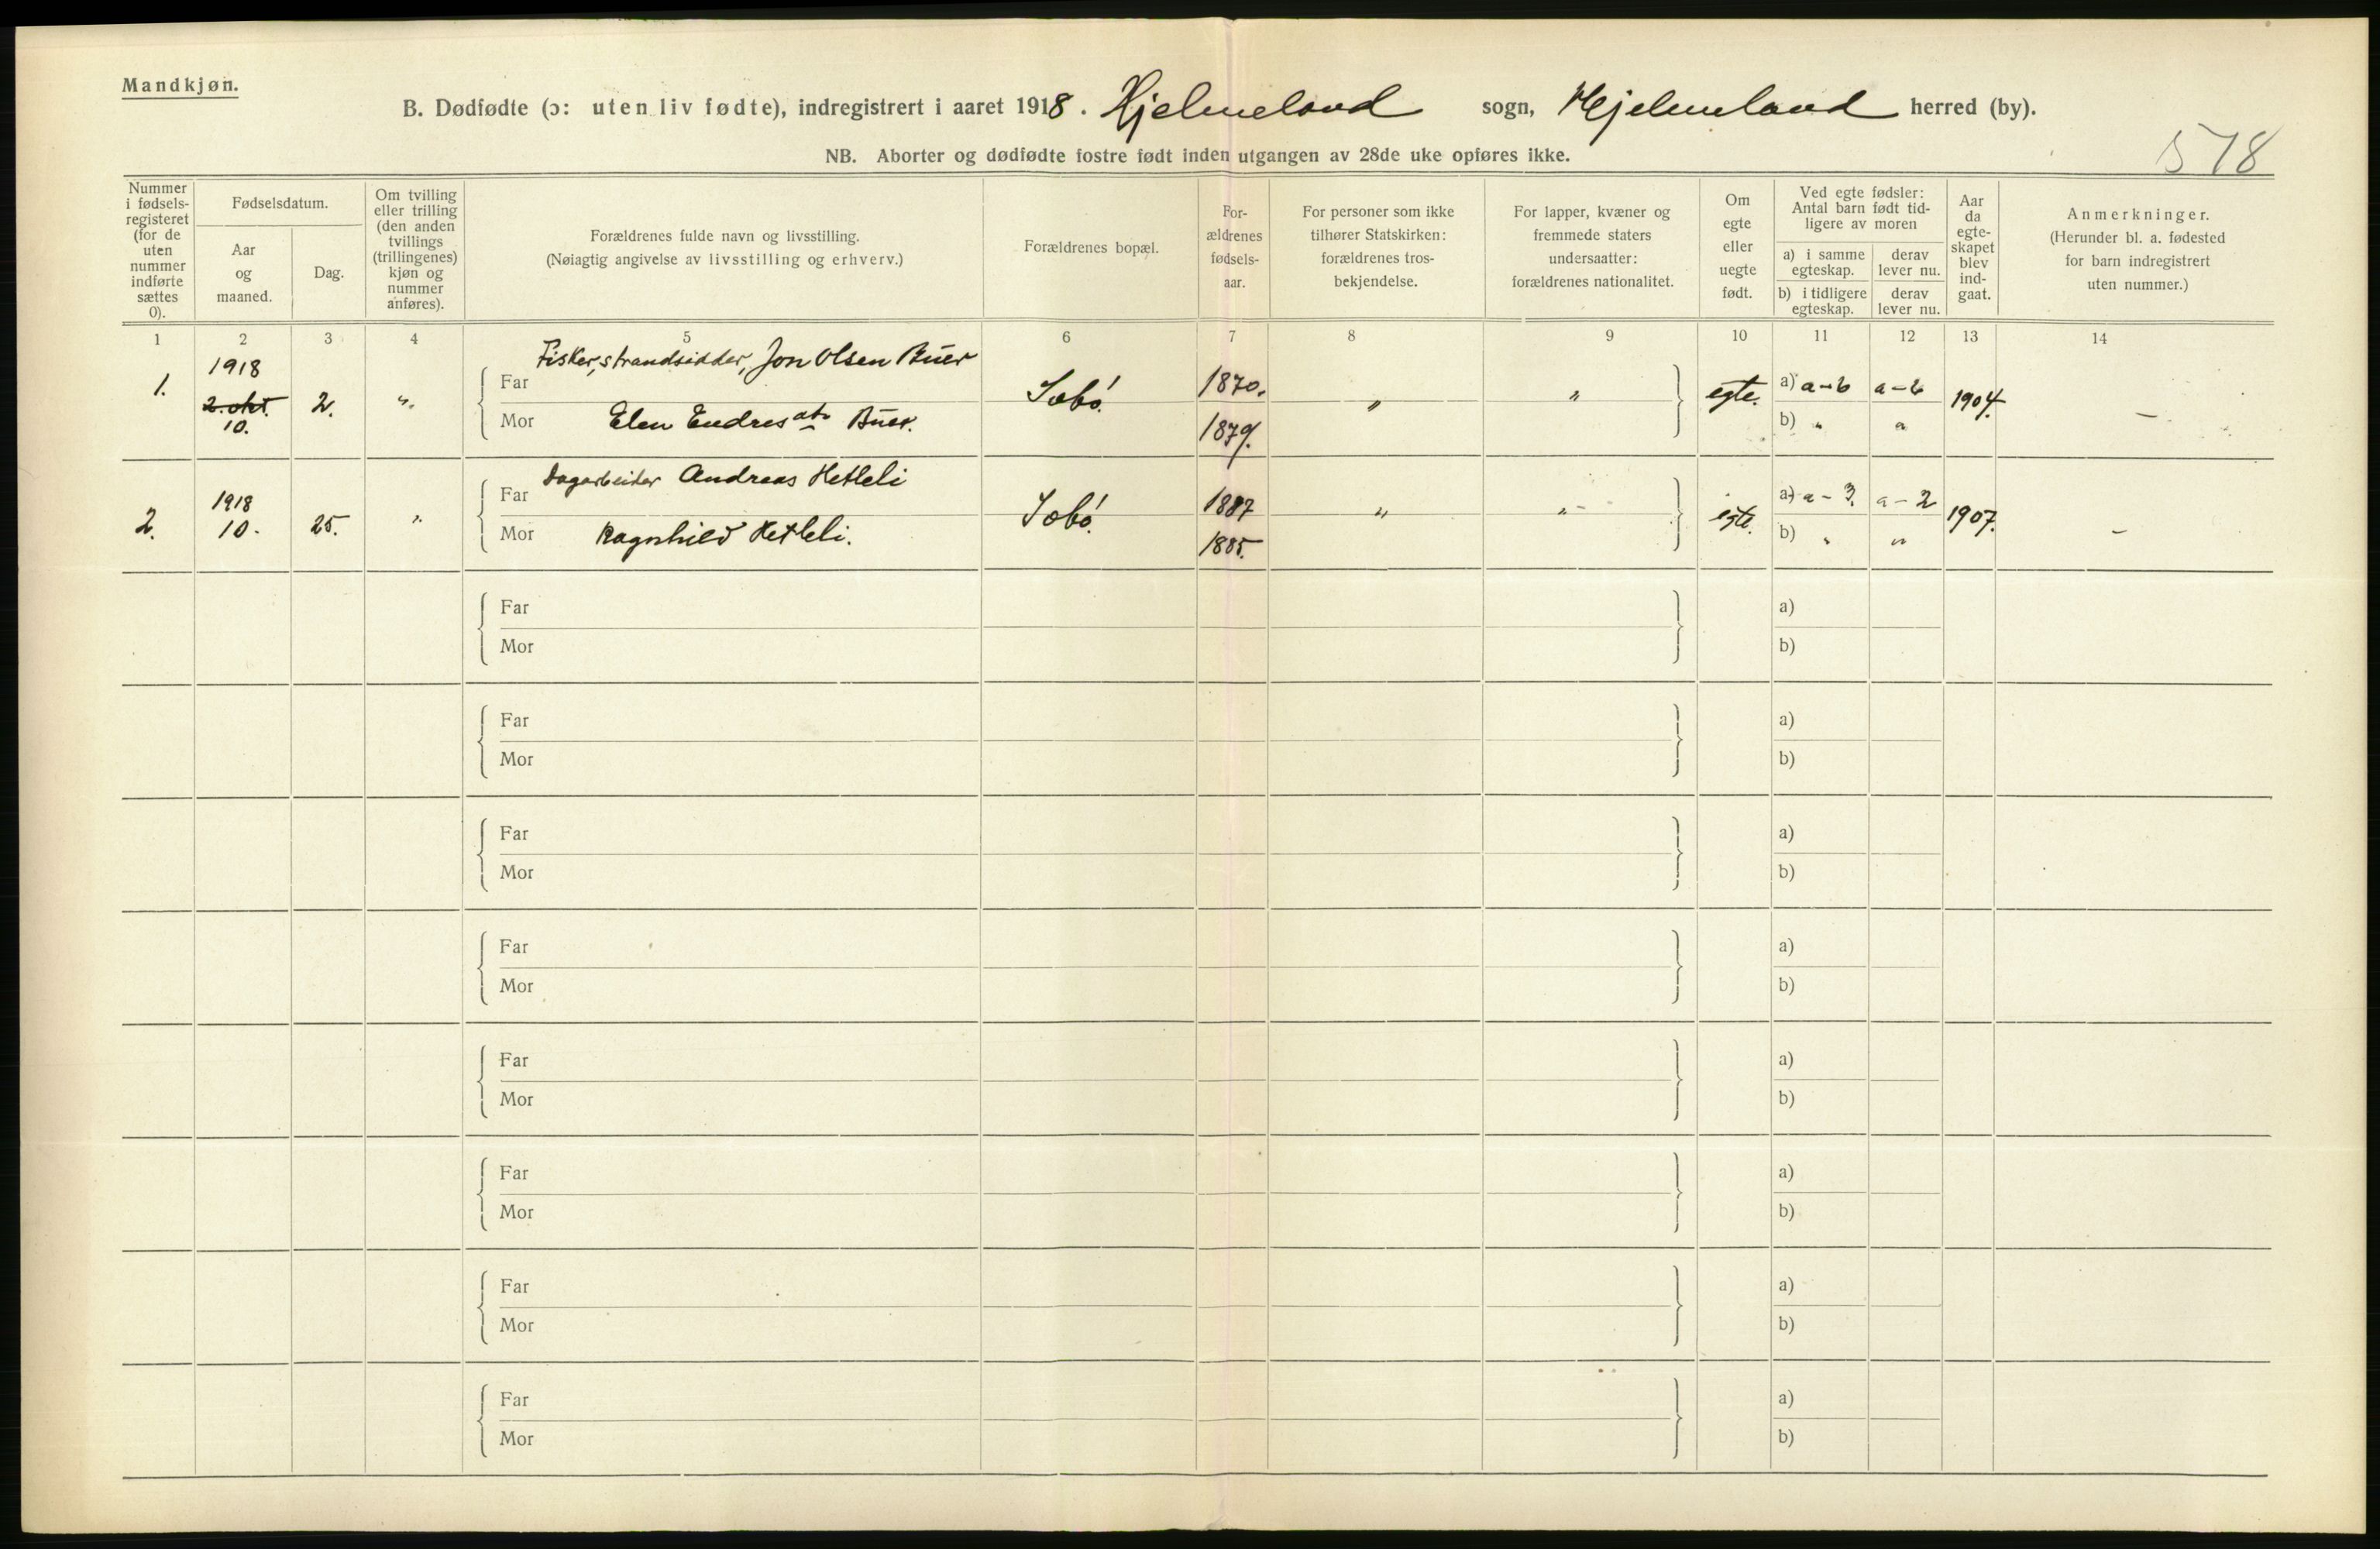 Mandkjøn.
B. Dødfødte (ɔ: uten liv fødte), indregistrert i aaret 1918. Hjelmeland sogn, Hjelmeland herred (by).
NB. Aborter og dødfødte fostre født inden utgangen av 28de uke opføres ikke.
578
Nummer
i fødsels-
registeret
(for de
uten
nummer
indførte
sættes
0).
Fødselsdatum.
Aar
og
maaned.
Dag.
Om tvilling
eller trilling
(den anden
tvillings
(trillingenes)
kjøn og
nummer
anføres).
Forældrenes fulde navn og livsstilling.
(Nøiagtig angivelse av livsstilling og erhverv.)
Forældrenes bopæl.
For-
ældrenes
fødsels-
aar.
For personer som ikke
tilhører Statskirken:
forældrenes tros-
bekjendelse.
For lapper, kvæner og
fremmede staters
undersaatter:
forældrenes nationalitet.
Om
egte
eller
uegte
født.
Ved egte fødsler:
Antal barn født tid-
ligere av moren
a) i samme
egteskap.
derav
lever nu.
b) i tidligere
egteskap.
derav
lever nu.
Aar
da
egte-
skapet
blev
ind-
gaat.
Anmerkninger.
(Herunder bl. a. fødested
for barn indregistrert
uten nummer.)
1 2 3 4 5 6 7 8 9 10 11 12 13 14
1. 1918 2. okt. 10. 2. "
Far Fisker, strandsidder, Jon Olsen Buer
Mor Elen Endresdtr Buer.
Sæbø. 1870. 1879. " " egte. a) a-6 a-6 1904. —
b) " "
2. 1918 10. 25. "
Far Dagarbeider Andreas Hetleli
Mor Ragnhild Hetleli.
Sæbø. 1887 1885. " "- egte. a) a-3. a-2 1907. —
b) " "
Far a)
Mor b)
Far a)
Mor b)
Far a)
Mor b)
Far a)
Mor b)
Far a)
Mor b)
Far a)
Mor b)
Far a)
Mor b)
Far a)
Mor b)